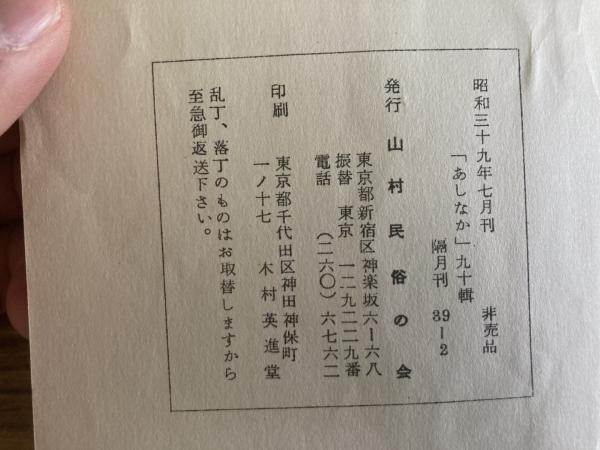 昭和三十九年七月刊　非売品
「あしなか」九十輯
隔月刊　39―2
発行　山村民俗の会
東京都新宿区神楽坂六―六八
振替　東京　一二九二二九番
電話　（二六〇）六七六二
印刷　東京都千代田区神田神保町
一ノ十七　木村英進堂
乱丁、落丁のものはお取替しますから
至急御返送下さい。